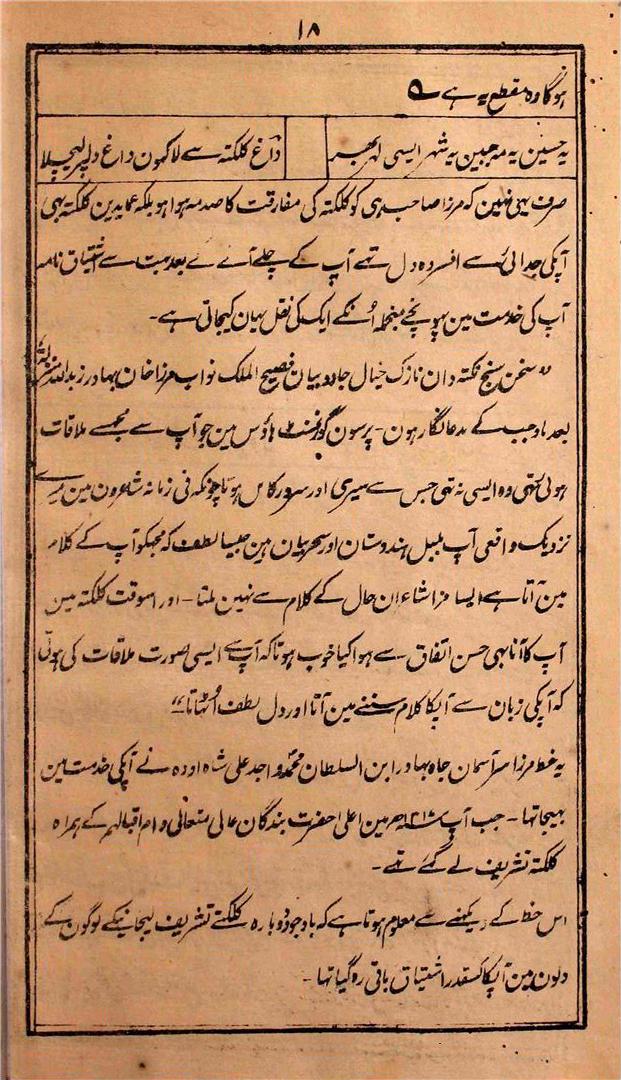 ۱۸
ہوگا وہ مقطع یہ ہے
یہ حسین یہ مہ جبین یہ شہر ایسی لہر بھر داغ کلکتہ سے لاکھون داغ دلپر لیچلا
صرف یہی نہین کہ مرزا صاحب ہی کو کلکتہ کی مفارقت کا صدمہ ہوا ہو بلکہ عمایدین کلکتہ بہی
آپکی جدائی سے افسردہ دل تہے آپ کے چلے آے نے بعد بہت سے اشتیاق نامہ
آپ کی خدمت مین پہونچے منجملہ اُنکے ایک کی نقل بیان کیجاتی ہے۔
" سخن سنج نکتہ دان نازک خیال جادو بیان فصیح الملک نواب مرزا خان بہادر زبداللہ
بعد ماوجب کے مدعا نگار ہون۔ پرسون گورنمنٹ ہاؤس مین جو آپ سے مجھسے ملاقات
ہوئی تہی وہ ایسی نہ تہی جس سے میری اور سرور کا س ہوتا چونکہ فی زمانہ شاعرون مین میرے
نزدیک واقعی آپ بلبل ہندوستان اور سحر بیان ہین جیسا لطف کہ مجہکو آپ کے کلام
مین آتا ہے ایسا مزا شاعران حال کے کلام سے نہین ملتا۔ اور اسوقت کلکتہ مین
آپ کا آنا بہی حسن اتفاق سے ہوا کیا خوب ہوتا کہ آپ سے ایسی صورت ملاقات کی ہوتی
کہ آپکی زبان سے آپکا کلام سننے مین آتا اور دل لطف اُٹہاتا"
یہ خط مرزا سر آسمان جاہ بہادر ابن السلطان محمد واجد علی شاہ اودہ نے آپکی خدمت مین
بہیجا تہا۔ جب آپ مین اعلی حضرت بندگان عالی متعالی دام اقبالہم کے ہمراہ
کلکتہ تشریف لے گئے تہے۔
اس خط کے دیکہنے سے معلوم ہوتا ہے کہ باوجود دوبارہ کلکتے تشریف لیجانیکے لوگون کے
دلون مین آپکا کسقدر اشتیاق باقی رہ گیا تہا۔